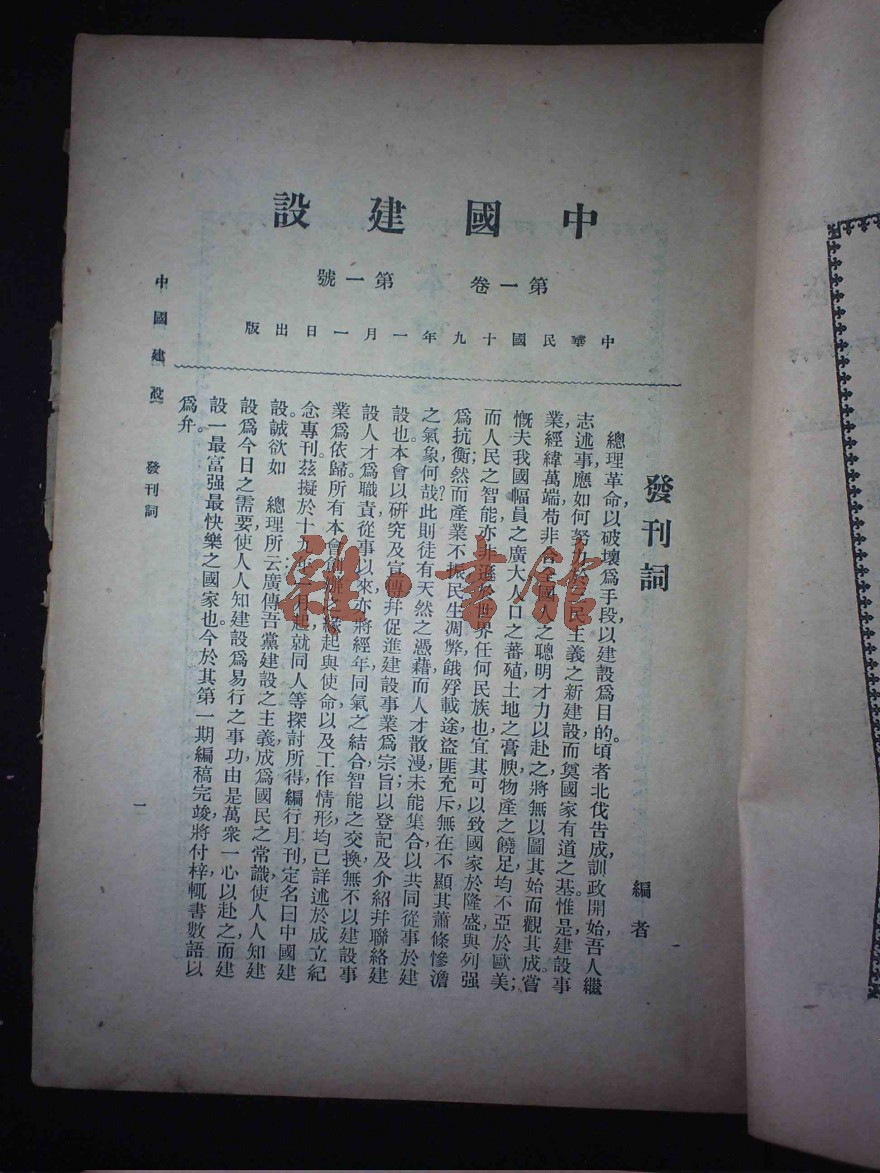 中國建設
第一卷　第一號
中華民國十九年一月一日出版
發刊詞
編者
總理革命，以破壞爲手段，以建設爲目的。頃者北伐告成，訓政開始，吾人繼
志述事，應如何努力於三民主義之新建設，而奠國家有道之基。惟是建設事
業，經緯萬端，苟非合全國人之聰明才力以赴之，將無以圖其始而觀其成。嘗
慨夫我國幅員之廣大，人口之蕃殖，土地之膏腴，物產之饒足，均不亞於歐美；
而人民之智能，亦非遜於世界任何民族也，宜其可以致國家於隆盛，與列强
爲抗衡；然而產業不振，民生凋弊，餓殍載途，盜匪充斥，無在不顯其蕭條慘澹
之氣象，何哉？此則徒有天然之憑藉，而人才散漫，未能集合以共同從事於建
設也。本會以研究及宣傳幷促進建設事業爲宗旨；以登記及介紹幷聯絡建
設人才爲職責，從事以來，亦將經年，同氣之結合，智能之交換，無不以建設事
業爲依歸。所有本會之緣起與使命，以及工作情形，均已詳述於成立紀
念專刊。茲擬於十九年一月起，就同人等探討所得，編行月刊，定名曰中國建
設。誠欲如　總理所云，廣傳吾黨建設之主義，成爲國民之常識，使人人知建
設爲今日之需要，使人人知建設爲易行之事功，由是萬衆一心以赴之，而建
設一最富强最快樂之國家也。今於其第一期編稿完竣，將付梓，輒書數語以
爲弁。
中國建設　發刊詞
一
雜·書館